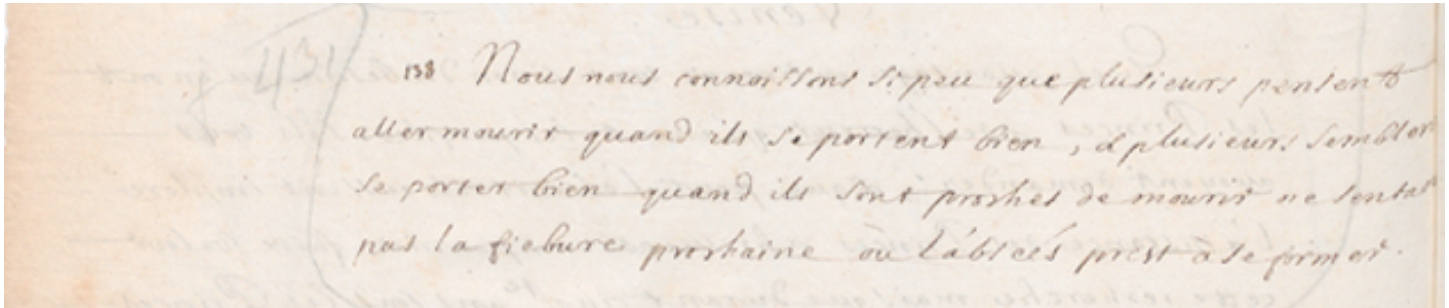 138 Nous nous connoissons si peu que plusieurs pensent
aller mourir quand ils se portent bien, & plusieurs semblent
se porter bien quand ils sont proches de mourir ne sentāt
pas la fiebure prochaine ou l'abscés prest a se former.